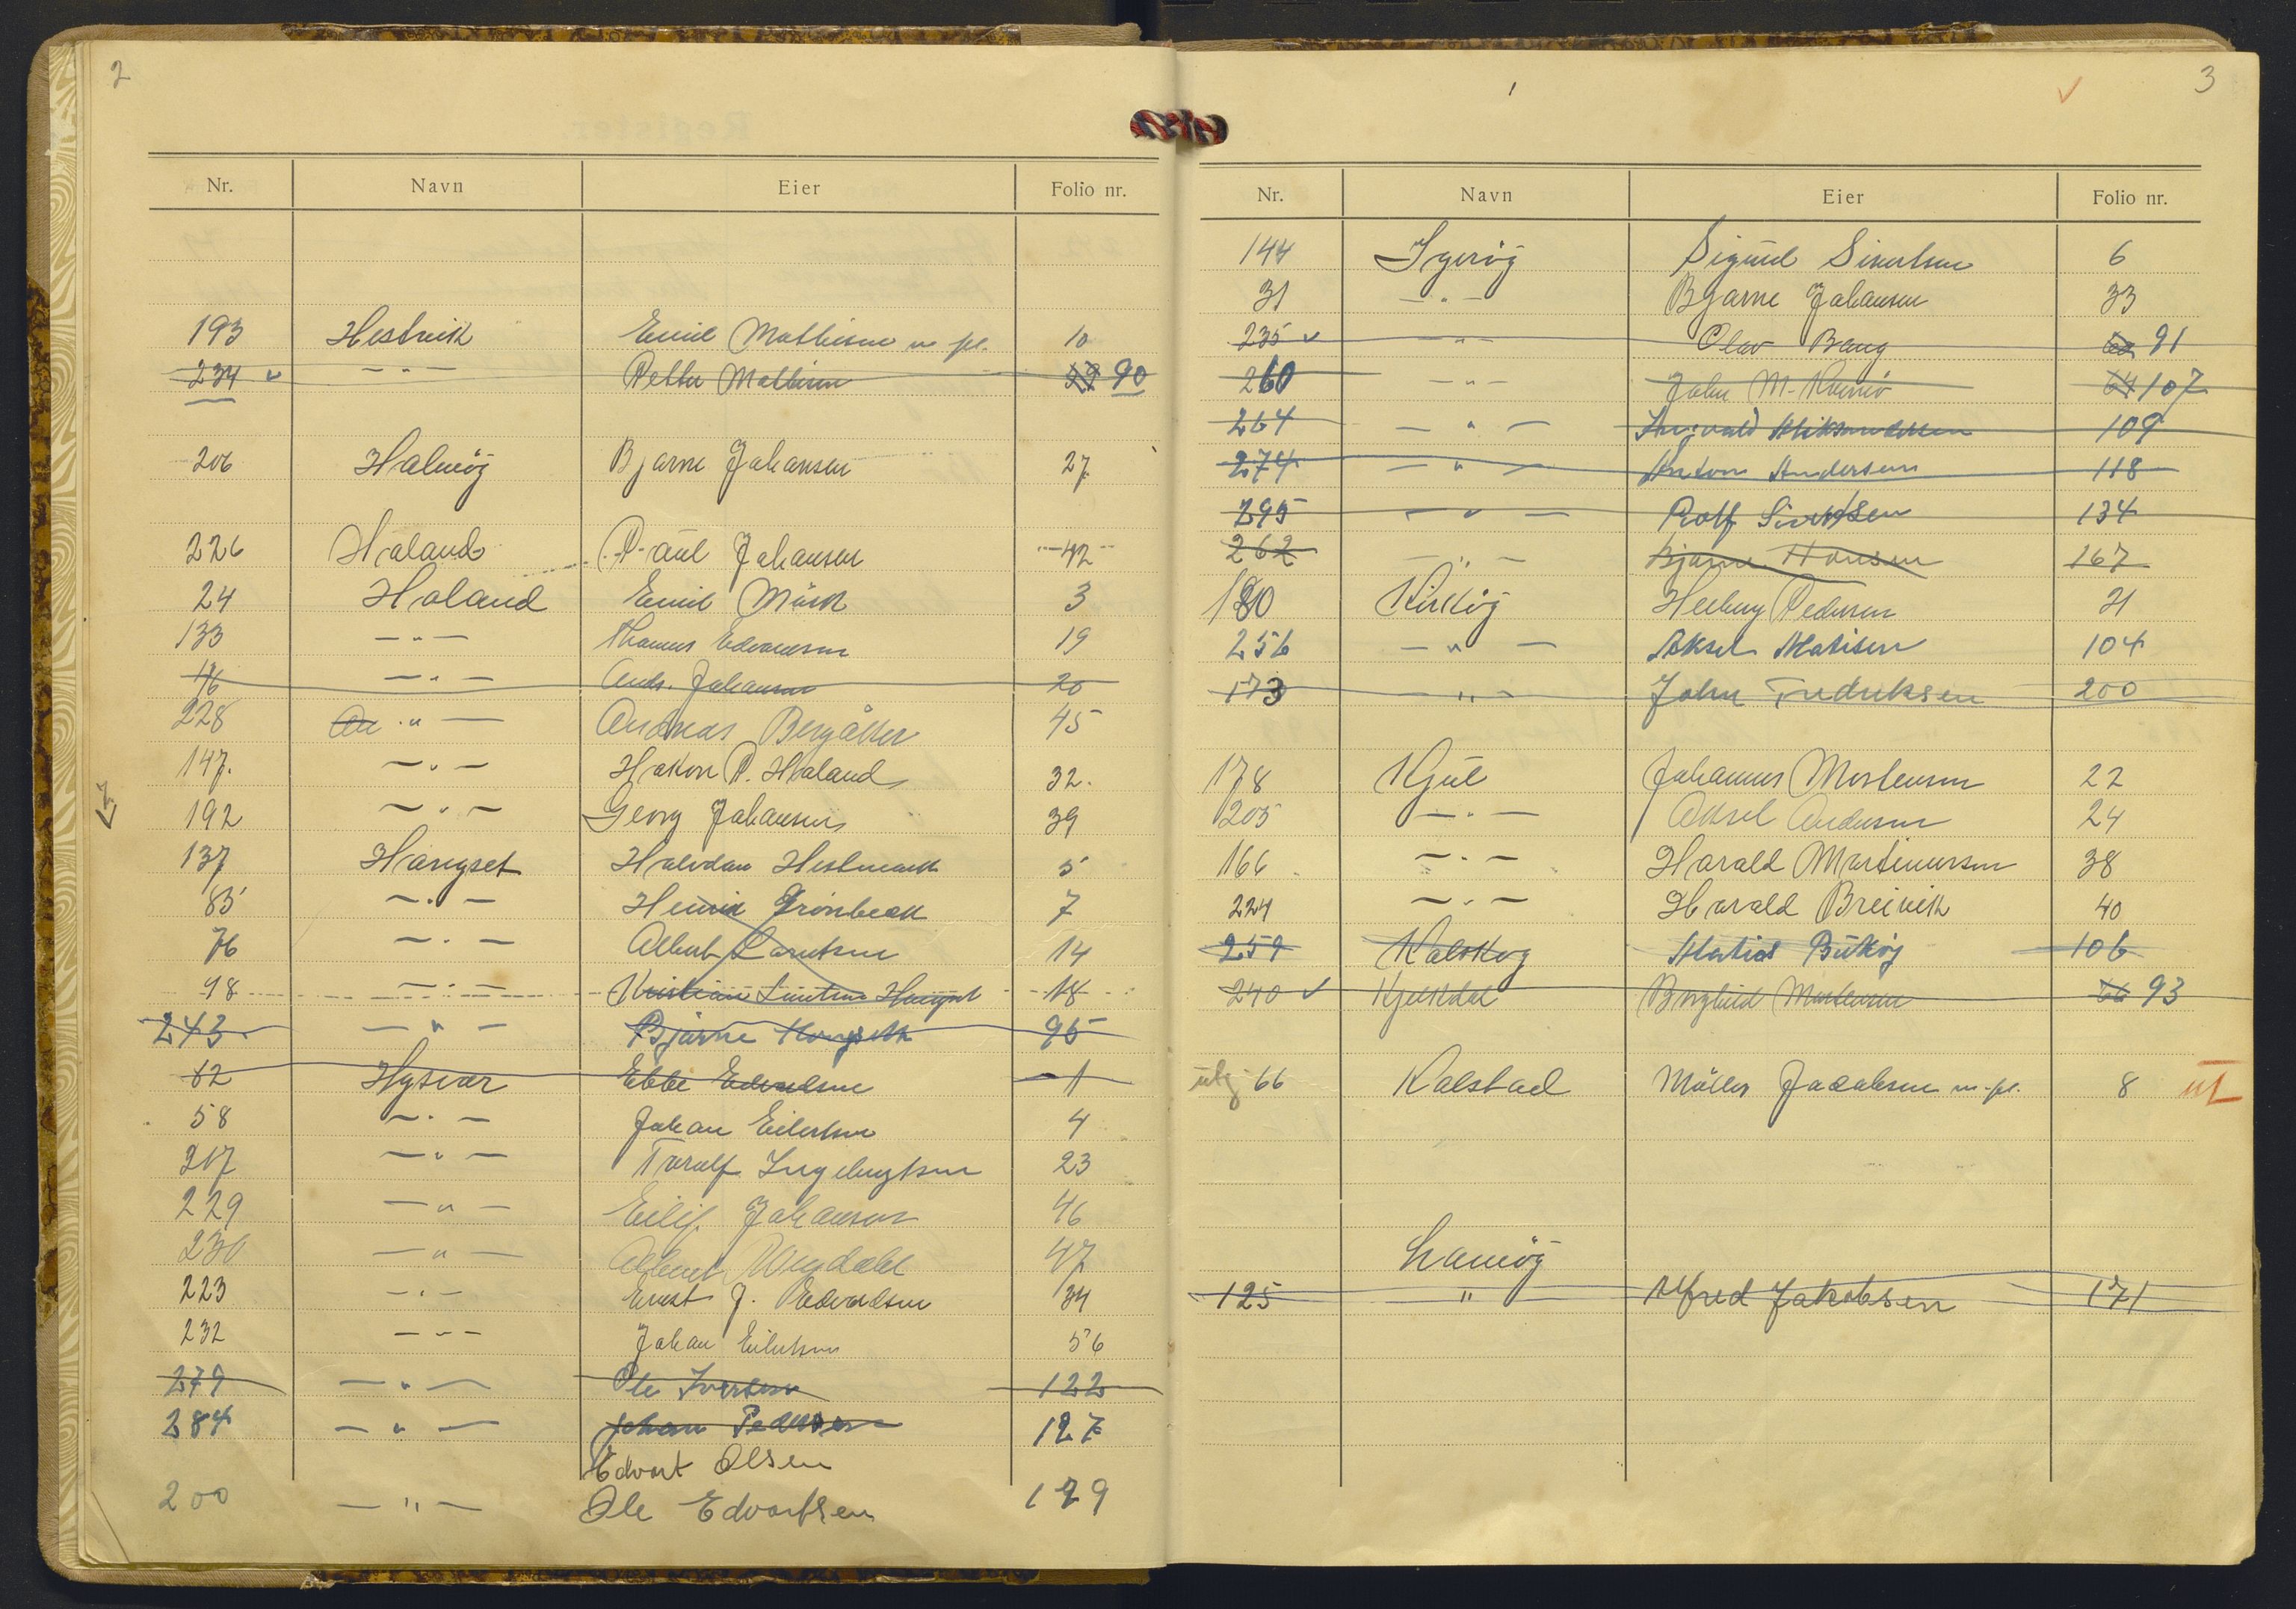 2
Nr. Navn Eier Folio nr.
193 Hestvik Emil Mathisen m pl. 10
234 v — " — Petter Mathisen 90
206 Halmöy Bjarne Johansen 27
226 Haland Paul Johansen 42
24 Haland Emil Mörk 3
133 — " — Thomas Edvardsen 19
16 — " — Andr. Johansen 20
228 — " — Andreas Bergåker 45
147. — " — Hakon P. Haland 32.
192 — " — Georg Johansen 39
137 Hangset Halvdan Hestmark 5
85 — " — Henrik Grönbeck 7
76 — " — Albert Laritsen 14
98 — " — Kristian 18
243 — " — Bjarne Hongseth 95
62 Hysvær Ebbe Edvardsen 1
58 — " — Johan Eilertsen 4
217 — " — Toralf Ingebrigtsen 23
229 — " — Eilif Johansen 46
230 — " — Albert 47
223 — " — Ernst J. Edvardsen 34
232 — " — Johan Eilertsen 56
279 — " — Ole Iversen 122
284 — " — Johan Pedersen 127
Edvart Olsen
200 — " — Ole Edvartsen 129
3
Nr. Navn Eier Folio nr.
144 Igeröy Sigurd Sivertsen 6
31 — " — Bjarne Johansen 33
235 v — " — Olav Bang 91
260 — " — John M. 64 107
264 — " — Aleksandersen 109
274 — " — Anton Andersen 118
295 — " — Rolf Sivertsen 134
262 — " — Bjarne Hansen 167
180 Kirköy Herberg Pedersen 21
256 — " — Aksel Matisen 104
173 — " — John Fredriksen 200
178 Kjul Johannes Mortensen 22
205 — " — Aksel Andersen 24
166 — " — Harald Martinussen 38
224 — " — Harald Breivik 40
259 Kalskog Matias Buköy 106
240 v Kjelkdal Borghild Mortensen 66 93
utg 66 Kalstad Möller Jacobsen m. pl. 8 ut
Lamöy
125 " Alfred Jakobsen 171